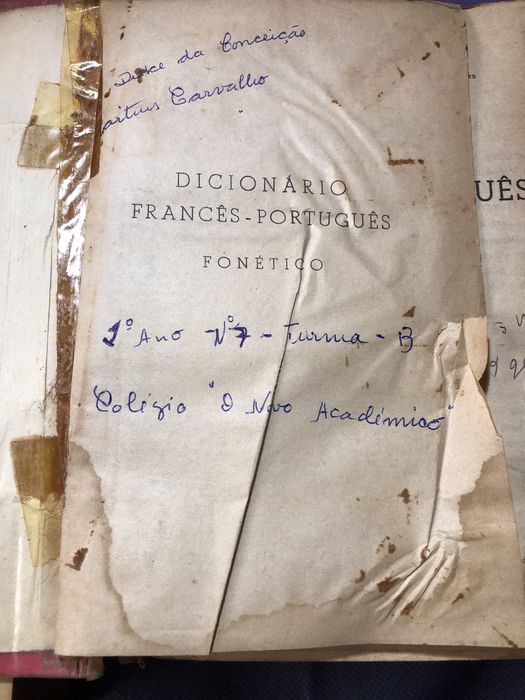 Dulce da Conceição
Carvalho
DICIONÁRIO
FRANCÊS-PORTUGUÊS
FONÉTICO
1º Ano Nº 7 - Turma - B
Colégio "O Novo Académico"
UÊS